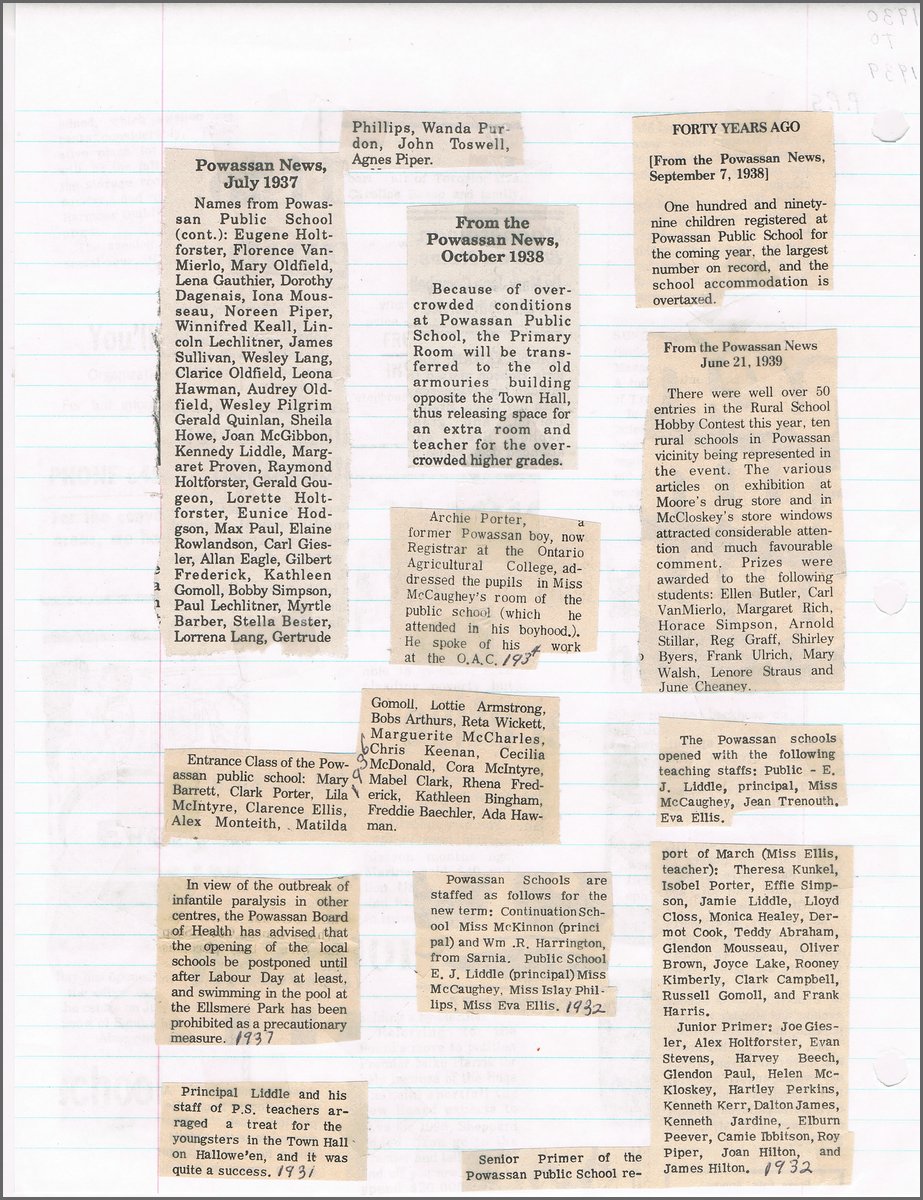 Powassan News,
July 1937
Names from Powas-
san Public School
(cont.): Eugene Holt-
forster, Florence Van-
Mierlo, Mary Oldfield,
Lena Gauthier, Dorothy
Dagenais, Iona Mous-
seau, Noreen Piper,
Winnifred Keall, Lin-
coln Lechlitner, James
Sullivan, Wesley Lang,
Clarice Oldfield, Leona
Hawman, Audrey Old-
field, Wesley Pilgrim
Gerald Quinlan, Sheila
Howe, Joan McGibbon,
Kennedy Liddle, Marg-
aret Proven, Raymond
Holtforster, Gerald Gou-
geon, Lorette Holt-
forster, Eunice Hod-
gson, Max Paul, Elaine
Rowlandson, Carl Gies-
ler, Allan Eagle, Gilbert
Frederick, Kathleen
Gomoll, Bobby Simpson,
Paul Lechlitner, Myrtle
Barber, Stella Bester,
Lorrena Lang, Gertrude
Phillips, Wanda Pur-
don, John Toswell,
Agnes Piper.
From the
Powassan News,
October 1938
Because of over-
crowded conditions
at Powassan Public
School, the Primary
Room will be trans-
ferred to the old
armouries building
opposite the Town Hall,
thus releasing space for
an extra room and
teacher for the over-
crowded higher grades.
FORTY YEARS AGO
[From the Powassan News,
September 7, 1938]
One hundred and ninety-
nine children registered at
Powassan Public School for
the coming year, the largest
number on record, and the
school accommodation is
overtaxed.
From the Powassan News
June 21, 1939
There were well over 50
entries in the Rural School
Hobby Contest this year, ten
rural schools in Powassan
vicinity being represented in
the event. The various
articles on exhibition at
Moore's drug store and in
McCloskey's store windows
attracted considerable atten-
tion and much favourable
comment. Prizes were
awarded to the following
students: Ellen Butler, Carl
VanMierlo, Margaret Rich,
Horace Simpson, Arnold
Stillar, Reg Graff, Shirley
Byers, Frank Ulrich, Mary
Walsh, Lenore Straus and
June Cheaney.
Archie Porter, a
former Powassan boy, now
Registrar at the Ontario
Agricultural College, ad-
dressed the pupils in Miss
McCaughey's room of the
public school (which he
attended in his boyhood.).
He spoke of his work
at the O.A.C. 1934
Entrance Class of the Pow-
assan public school: Mary
Barrett, Clark Porter, Lila
McIntyre, Clarence Ellis,
Alex Monteith, Matilda
1936
Gomoll, Lottie Armstrong,
Bobs Arthurs, Reta Wickett,
Marguerite McCharles,
Chris Keenan, Cecilia
McDonald, Cora McIntyre,
Mabel Clark, Rhena Fred-
erick, Kathleen Bingham,
Freddie Baechler, Ada Haw-
man.
The Powassan schools
opened with the following
teaching staffs: Public - E.
J. Liddle, principal, Miss
McCaughey, Jean Trenouth,
Eva Ellis.
In view of the outbreak of
infantile paralysis in other
centres, the Powassan Board
of Health has advised that
the opening of the local
schools be postponed until
after Labour Day at least,
and swimming in the pool at
the Ellsmere Park has been
prohibited as a precautionary
measure. 1937
Powassan Schools are
staffed as follows for the
new term: Continuation Sch-
ool Miss McKinnon (princi
pal) and Wm .R. Harrington,
from Sarnia. Public School
E. J. Liddle (principal) Miss
McCaughey, Miss Islay Phil-
lips, Miss Eva Ellis. 1932
Principal Liddle and his
staff of P.S. teachers ar-
raged a treat for the
youngsters in the Town Hall
on Hallowe'en, and it was
quite a success. 1931
Senior Primer of the
Powassan Public School re-
port of March (Miss Ellis,
teacher): Theresa Kunkel,
Isobel Porter, Effie Simp-
son, Jamie Liddle, Lloyd
Closs, Monica Healey, Der-
mot Cook, Teddy Abraham,
Glendon Mousseau, Oliver
Brown, Joyce Lake, Rooney
Kimberly, Clark Campbell,
Russell Gomoll, and Frank
Harris.
Junior Primer: Joe Gies-
ler, Alex Holtforster, Evan
Stevens, Harvey Beech,
Glendon Paul, Helen Mc-
Kloskey, Hartley Perkins,
Kenneth Kerr, Dalton James,
Kenneth Jardine, Elburn
Peever, Camie Ibbitson, Roy
Piper, Joan Hilton, and
James Hilton. 1932
1930
TO
1939
P.P.S